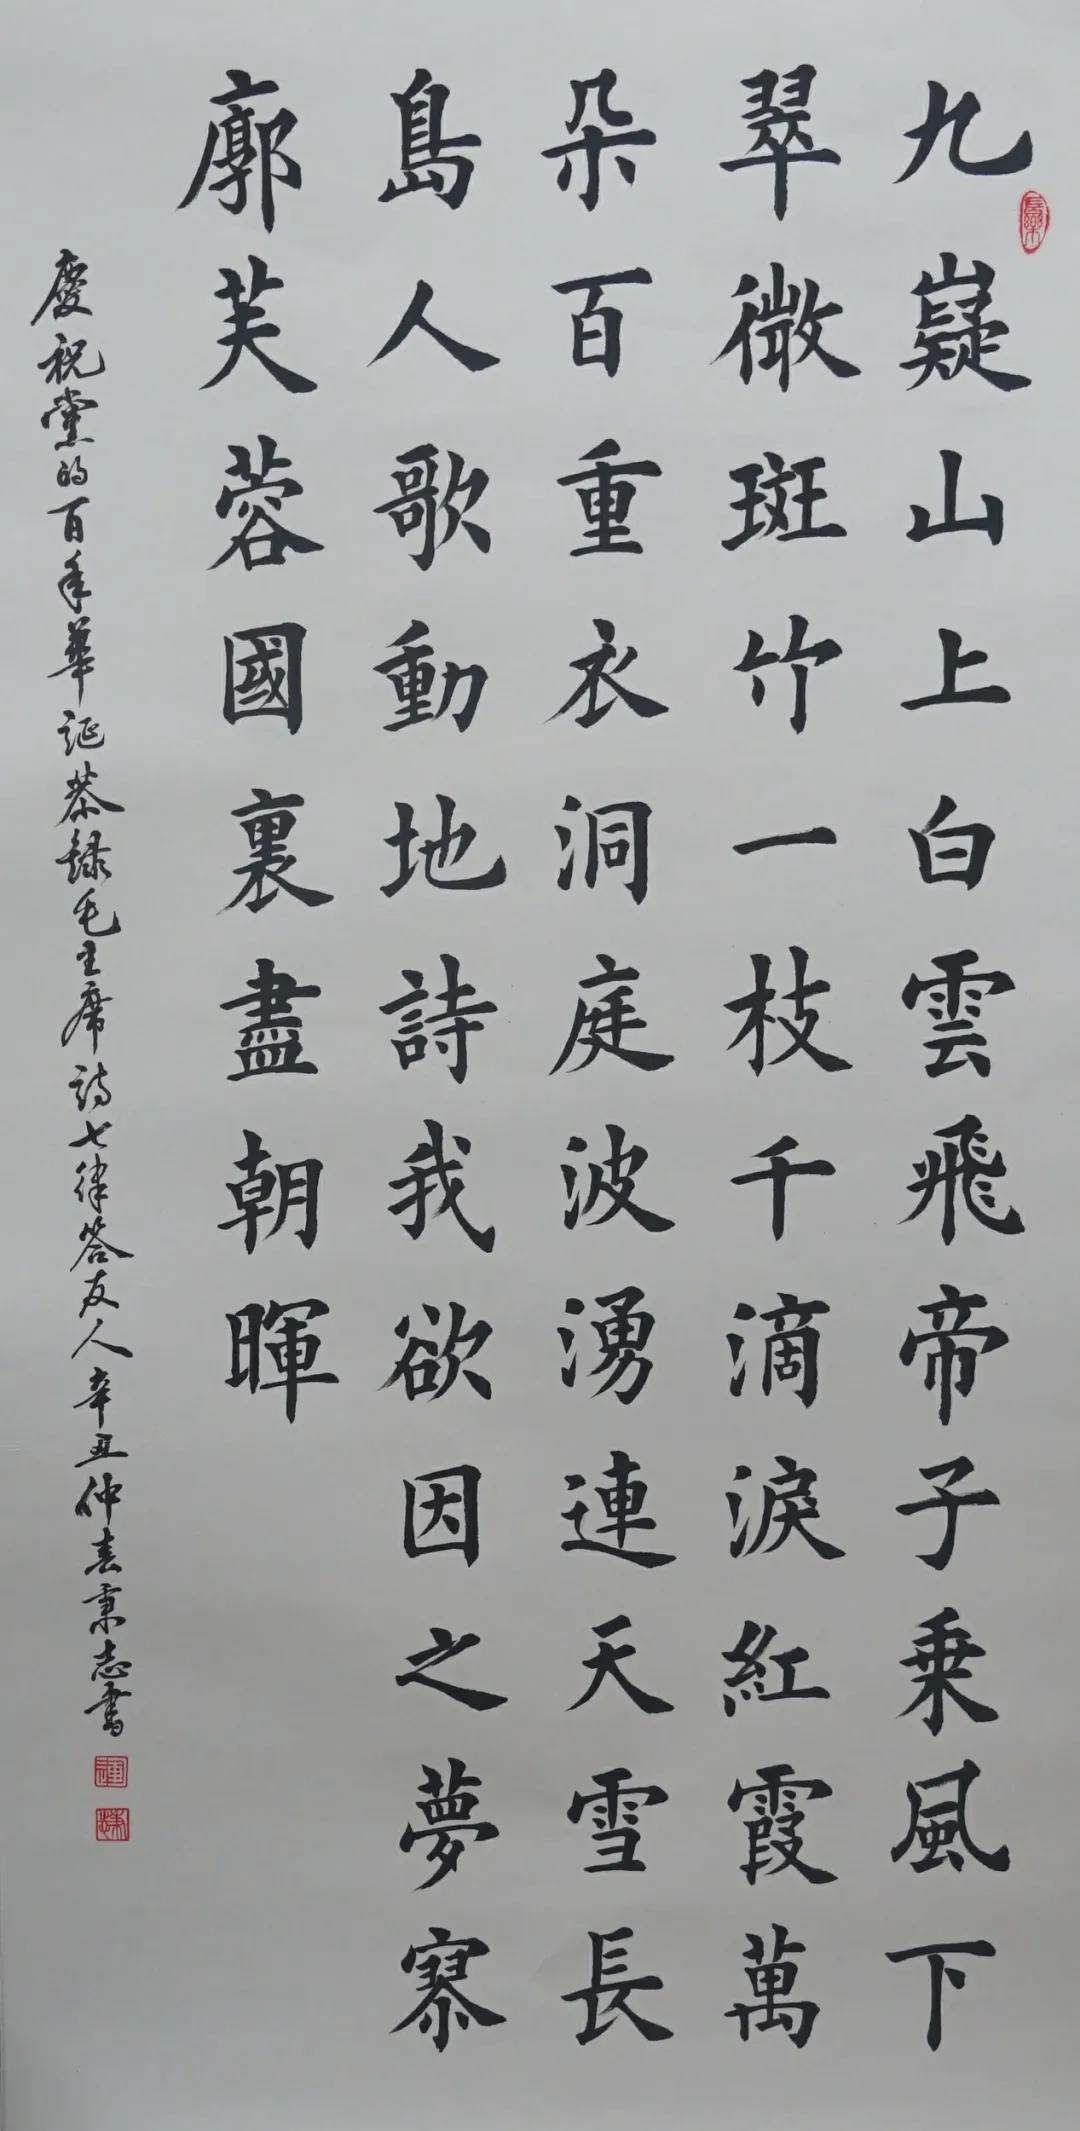 九嶷山上白雲飛帝子乗風下
翠微斑竹一枝千滴淚紅霞萬
朵百重衣洞庭波湧連天雪長
島人歌動地詩我欲因之夢寥
廓芙蓉國裏盡朝暉
慶祝黨的百年華誕恭録毛主席詩七律答友人辛丑仲春秉志書